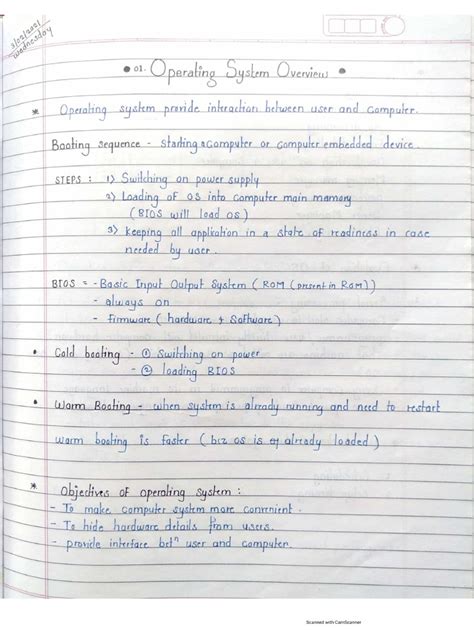 3/02/2021
Wednesday
• 01. Operating System Overview •
* Operating system provide interaction between user and computer.
Booting sequence - starting a computer or computer embedded device.
STEPS : 1) Switching on power supply
2) Loading of OS into computer main memory
(BIOS will load OS)
3) keeping all application in a state of readiness in case
needed by user.
BIOS = - Basic Input Output System ( ROM (present in ROM))
- always on
- firmware ( hardware & Software)
• Cold booting - ① Switching on power
- ② loading BIOS
• Warm Booting - when system is already running and need to restart
warm booting is faster ( bcz OS is already loaded )
* Objectives of operating system :
- To make computer system more convenient.
- To hide hardware details from users.
- provide interface betⁿ user and computer.
Scanned with CamScanner